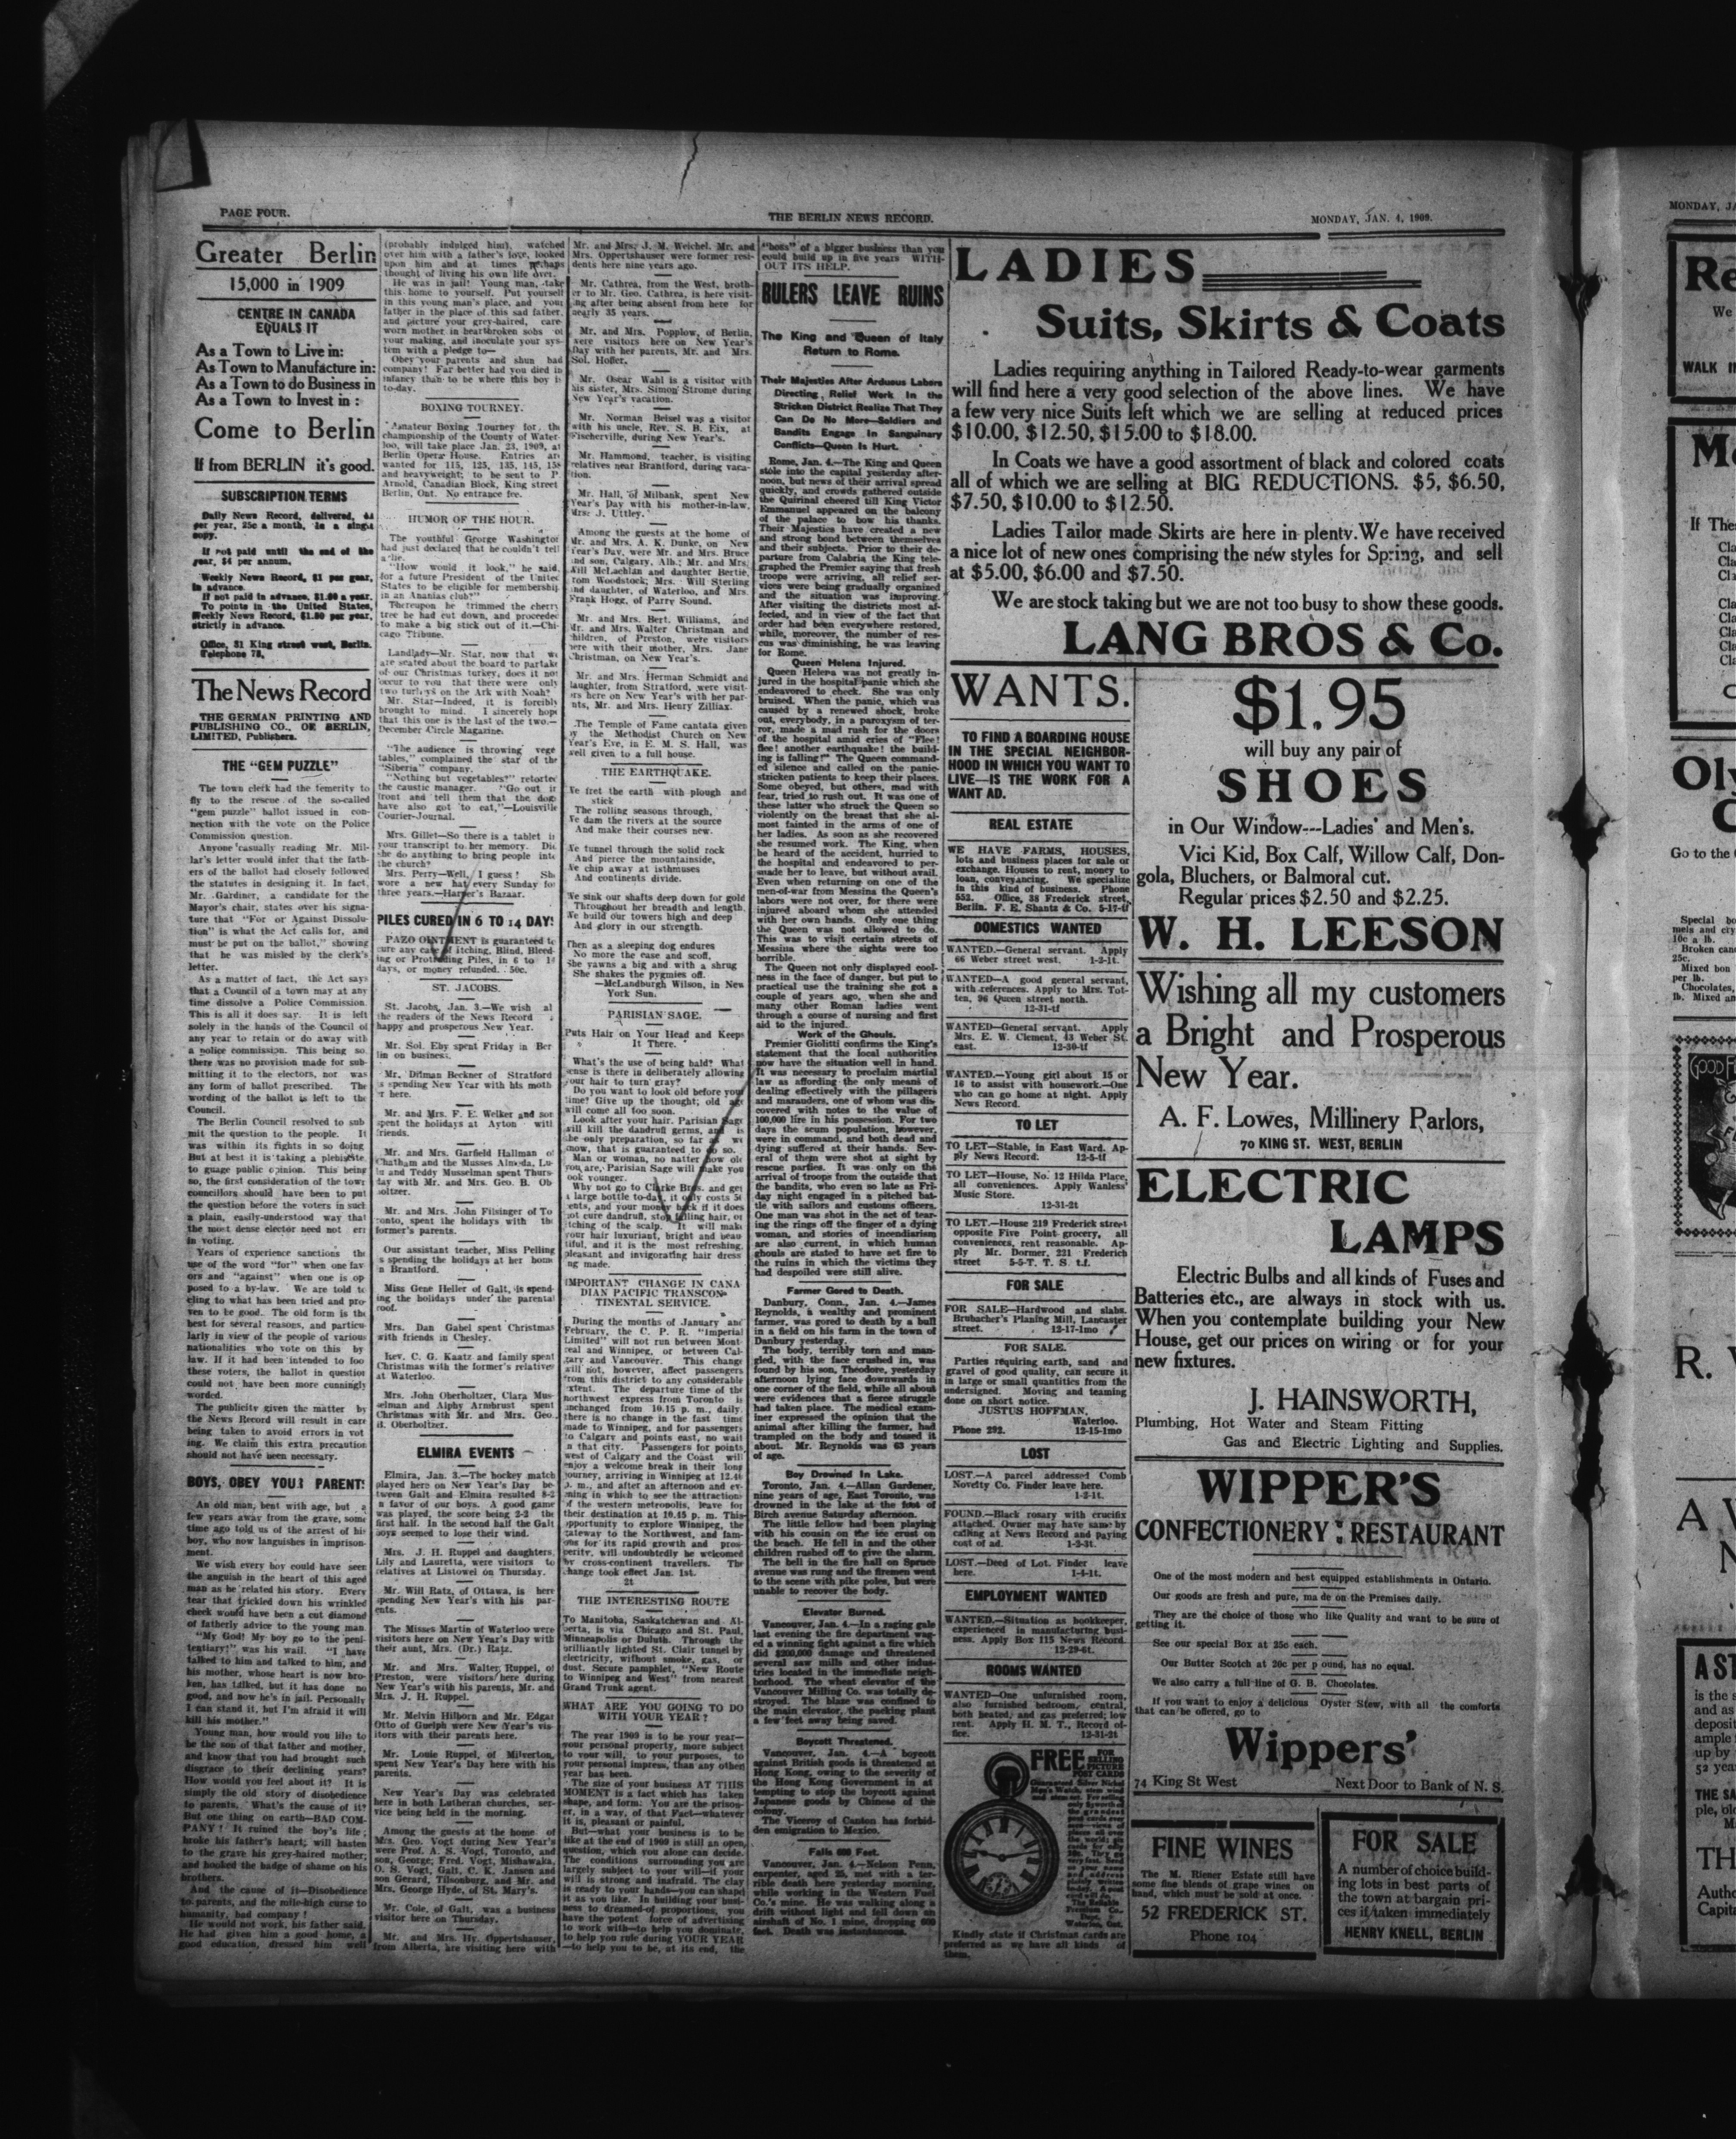 PAGE FOUR.
THE BERLIN NEWS RECORD.
MONDAY, JAN. 4, 1909.
Greater Berlin
15,000 in 1909
CENTRE IN CANADA
EQUALS IT
As a Town to Live in:
As a Town to Manufacture in:
As a Town to do Business in
As a Town to Invest in :
Come to Berlin
If from BERLIN it's good.
SUBSCRIPTION TERMS
Daily News Record, delivered, $4
per year, 25c a month, 1c a single
copy.
If not paid until the end of the
year, $4 per annum.
Weekly News Record, $1 per year,
in advance.
If not paid in advance, $1.50 a year.
To points in the United States,
Weekly News Record, $1.50 per year,
strictly in advance.
Office, 31 King street west, Berlin.
Telephone 78.
The News Record
THE GERMAN PRINTING AND
PUBLISHING CO., OF BERLIN,
LIMITED, Publishers.
THE "GEM PUZZLE"
The town clerk had the temerity to
fly to the rescue of the so-called
"gem puzzle" ballot issued in con-
nection with the vote on the Police
Commission question.
Anyone casually reading Mr. Mil-
lar's letter would infer that the fath-
ers of the ballot had closely followed
the statutes in designing it. In fact,
Mr. Gardiner, a candidate for the
Mayor's chair, states over his signa-
ture that "For or Against Dissolu-
tion" is what the Act calls for, and
must be put on the ballot," showing
that he was misled by the clerk's
letter.
As a matter of fact, the Act says
that a Council of a town may at any
time dissolve a Police Commission.
This is all it does say. It is left
solely in the hands of the Council of
any year to retain or do away with
a police commission. This being so,
there was no provision made for sub-
mitting it to the electors, nor was
any form of ballot prescribed. The
wording of the ballot is left to the
Council.
The Berlin Council resolved to sub
mit the question to the people. It
was within its fights in so doing
But at best it is taking a plebiscite
to guage public opinion. This being
so, the first consideration of the town
councillors should have been to put
the question before the voters in such
a plain, easily-understood way that
the most dense elector need not err
in voting.
Years of experience sanctions the
use of the word "for" when one fav
ors and "against" when one is op
posed to a by-law. We are told to
cling to what has been tried and pro-
ven to be good. The old form is the
best for several reasons, and particu-
larly in view of the people of various
nationalities who vote on this by
law. If it had been intended to foo
these voters, the ballot in question
could not have been more cunningly
worded.
The publicity given the matter by
the News Record will result in care
being taken to avoid errors in vot
ing. We claim this extra precaution
should not have been necessary.
BOYS, OBEY YOUR PARENT!
An old man, bent with age, but a
few years away from the grave, some
time ago told us of the arrest of his
boy, who now languishes in imprison-
ment.
We wish every boy could have seen
the anguish in the heart of this aged
man as he related his story. Every
tear that trickled down his wrinkled
cheek would have been a cut diamond
of fatherly advice to the young man.
"My God! My boy go to the peni-
tentiary!" was his wail. "I have
talked to him and talked to him, and
his mother, whose heart is now bro-
ken, has talked, but it has done no
good, and now he's in jail. Personally
I can stand it, but I'm afraid it will
kill his mother."
Young man, how would you like to
be the son of that father and mother,
and know that you had brought such
disgrace to their declining years?
How would you feel about it? It is
simply the old story of disobedience
to parents. What's the cause of it?
But one thing on earth—BAD COM-
PANY! It ruined the boy's life,
broke his father's heart; will hasten
to the grave his grey-haired mother,
and hooked the badge of shame on his
brothers.
And the cause of it—Disobedience
to parents, and the mile-high curse to
humanity, bad company!
He would not work, his father said.
He had given him a good home, a
good education, dressed him well
(probably indulged him), watched
over him with a father's love, looked
upon him and at times perhaps
thought of living his own life over.
He was in jail! Young man, take
this home to yourself. Put yourself
in this young man's place, and your
father in the place of this sad father,
and picture your grey-haired, care-
worn mother in heartbroken sobs of
your making, and inoculate your sys-
tem with a pledge to—
Obey your parents and shun bad
company! Far better had you died in
infancy than to be where this boy is
to-day.
BOXING TOURNEY.
Amateur Boxing Tourney for the
championship of the County of Water-
loo, will take place Jan. 23, 1909, at
Berlin Opera House. Entries are
wanted for 115, 125, 135, 145, 158
and heavyweight; to be sent to P.
Arnold, Canadian Block, King street
Berlin, Ont. No entrance fee.
HUMOR OF THE HOUR.
The youthful George Washington
had just declared that he couldn't tell
a lie.
"How would it look," he said,
for a future President of the United
States to be eligible for membership
in an Ananias club?"
Thereupon he trimmed the cherry
tree he had cut down, and proceeded
to make a big stick out of it.—Chi-
cago Tribune.
Landlady—Mr. Star, now that we
are seated about the board to partake
of our Christmas turkey, does it not
occur to you that there were only
two turkeys on the Ark with Noah?
Mr. Star—Indeed, it is forcibly
brought to mind. I sincerely hope
that this one is the last of the two.—
December Circle Magazine.
"The audience is throwing vege
tables," complained the star of the
"Siberia" company.
"Nothing but vegetables?" retorted
the caustic manager. "Go out in
front and tell them that the dogs
have also got to eat,"—Louisville
Courier-Journal.
Mrs. Gillet—So there is a tablet in
your transcript to her memory. Did
she do anything to bring people into
the church?
Mrs. Perry—Well, I guess! She
wore a new hat every Sunday for
three years.—Harper's Bazaar.
PILES CURED IN 6 TO 14 DAYS
PAZO OINTMENT is guaranteed to
cure any case of Itching, Blind, Bleed-
ing or Protruding Piles, in 6 to 14
days, or money refunded. 50c.
ST. JACOBS.
St. Jacobs, Jan. 3.—We wish all
the readers of the News Record a
happy and prosperous New Year.
Mr. Sol. Eby spent Friday in Ber
lin on business.
Mr. Dilman Beckner of Stratford
s spending New Year with his moth
er here.
Mr. and Mrs. F. E. Welker and son
spent the holidays at Ayton with
friends.
Mr. and Mrs. Garfield Hallman of
Chatham and the Musses Almeda, Lu-
lu and Teddy Musselman spent Thurs-
day with Mr. and Mrs. Geo. B. Ob
oltzer.
Mr. and Mrs. John Filsinger of To
ronto, spent the holidays with the
former's parents.
Our assistant teacher, Miss Pelling
s spending the holidays at her home
n Brantford.
Miss Gene Heller of Galt, is spend-
ing the holidays under the parental
roof.
Mrs. Dan Gabel spent Christmas
with friends in Chesley.
Rev. C. G. Kaatz and family spent
Christmas with the former's relatives
at Waterloo.
Mrs. John Oberholtzer, Clara Mus-
selman and Alphy Arnbrust spent
Christmas with Mr. and Mrs. Geo.
B. Oberholtzer.
ELMIRA EVENTS
Elmira, Jan. 3.—The hockey match
played here on New Year's Day be-
tween Galt and Elmira resulted 8-2
n favor of our boys. A good game
was played, the score being 2-2 the
first half. In the second half the Galt
boys seemed to lose their wind.
Mrs. J. H. Ruppel and daughters,
Lily and Lauretta, were visitors to
relatives at Listowel on Thursday.
Mr. Will Ratz, of Ottawa, is here
spending New Year's with his par-
ents.
The Misses Martin of Waterloo were
visitors here on New Year's Day with
their aunt, Mrs. (Dr.) Ratz.
Mr. and Mrs. Walter Ruppel, of
Preston, were visitors here during
New Year's with his parents, Mr. and
Mrs. J. H. Ruppel.
Mr. Melvin Hilborn and Mr. Edgar
Otto of Guelph were New Year's vis-
itors with their parents here.
Mr. Louie Ruppel, of Milverton,
spent New Year's Day here with his
parents.
New Year's Day was celebrated
here in both Lutheran churches, ser-
vice being held in the morning.
Among the guests at the home of
Mrs. Geo. Vogt during New Year's
were Prof. A. S. Vogt, Toronto, and
son, George; Fred. Vogt, Mishawaka,
O. S. Vogt, Galt, C. K. Jansen and
son Gerard, Tilsonburg, and Mr. and
Mrs. George Hyde, of St. Mary's.
Mr. Cole, of Galt, was a business
visitor here on Thursday.
Mr. and Mrs. Hy. Oppertshauser,
from Alberta, are visiting here with
Mr. and Mrs. J. M. Weichel. Mr. and
Mrs. Oppertshauser were former resi-
dents here nine years ago.
Mr. Cathrea, from the West, broth-
er to Mr. Geo. Cathrea, is here visit-
ng after being absent from here for
nearly 35 years.
Mr. and Mrs. Popplow, of Berlin,
were visitors here on New Year's
Day with her parents, Mr. and Mrs.
Sol. Hoffer.
Mr. Oscar Wahl is a visitor with
his sister, Mrs. Simon Strome during
New Year's vacation.
Mr. Norman Beisel was a visitor
with his uncle, Rev. S. B. Eix, at
Fischerville, during New Year's.
Mr. Hammond, teacher, is visiting
relatives near Brantford, during vaca-
tion.
Mr. Hall, of Milbank, spent New
Year's Day with his mother-in-law.
Mrs. J. Uttley.
Among the guests at the home of
Mr. and Mrs. A. K. Dunke, on New
Year's Day, were Mr. and Mrs. Bruce
and son, Calgary, Alb.; Mr. and Mrs.
Will McLachlan and daughter Bertie,
rom Woodstock; Mrs. Will Sterling
and daughter, of Waterloo, and Mrs.
Frank Hogg, of Parry Sound.
Mr. and Mrs. Bert. Williams, and
Mr. and Mrs. Walter Christman and
children, of Preston, were visitors
here with their mother, Mrs. Jane
Christman, on New Year's.
Mr. and Mrs. Herman Schmidt and
daughter, from Stratford, were visit-
ors here on New Year's with her par-
nts, Mr. and Mrs. Henry Zilliax.
The Temple of Fame cantata given
by the Methodist Church on New
Year's Eve, in E. M. S. Hall, was
well given to a full house.
THE EARTHQUAKE.
We fret the earth with plough and
stick
The rolling seasons through,
We dam the rivers at the source
And make their courses new.
We tunnel through the solid rock
And pierce the mountainside,
We chip away at isthmuses
And continents divide.
We sink our shafts deep down for gold
Throughout her breadth and length.
We build our towers high and deep
And glory in our strength.
Then as a sleeping dog endures
No more the ease and scoff,
She yawns a big and with a shrug
She shakes the pygmies off.
—McLandburgh Wilson, in New
York Sun.
PARISIAN SAGE.
Puts Hair on Your Head and Keeps
It There.
What's the use of being bald? What
sense is there in deliberately allowing
your hair to turn gray?
Do you want to look old before your
time? Give up the thought; old age
will come all too soon.
Look after your hair. Parisian Sage
will kill the dandruff germs, and is
the only preparation, so far as we
know, that is guaranteed to do so.
Man or woman, no matter how old
you are, Parisian Sage will make you
ook younger.
Why not go to Clarke Bros. and get
a large bottle to-day, it only costs 50
cents, and your money back if it does
not cure dandruff, stop falling hair, or
itching of the scalp. It will make
your hair luxuriant, bright and beau
tiful, and it is the most refreshing,
pleasant and invigorating hair dress
ng made.
IMPORTANT CHANGE IN CANA
DIAN PACIFIC TRANSCON-
TINENTAL SERVICE.
During the months of January and
February, the C. P. R. "Imperial
Limited" will not run between Mont-
real and Winnipeg, or between Cal-
gary and Vancouver. This change
will not, however, affect passengers
from this district to any considerable
extent. The departure time of the
northwest express from Toronto is
unchanged from 10.15 p. m., daily.
there is no change in the fast time
made to Winnipeg, and for passengers
to Calgary and points east, no wait
n that city. Passengers for points
west of Calgary and the Coast will
enjoy a welcome break in their long
journey, arriving in Winnipeg at 12.40
p. m., and after an afternoon and ev-
ening in which to see the attractions
of the western metropolis, leave for
their destination at 10.45 p. m. This
opportunity to explore Winnipeg, the
gateway to the Northwest, and fam-
ous for its rapid growth and pros-
perity, will undoubtedly be welcomed
by cross-continent travellers. The
change took effect Jan. 1st.
2t
THE INTERESTING ROUTE
To Manitoba, Saskatchewan and Al-
berta, is via Chicago and St. Paul,
Minneapolis or Duluth. Through the
brilliantly lighted St. Clair tunnel by
electricity, without smoke, gas, or
dust. Secure pamphlet, "New Route
to Winnipeg and West" from nearest
Grand Trunk agent.
WHAT ARE YOU GOING TO DO
WITH YOUR YEAR?
The year 1909 is to be your year—
your personal property, more subject
to your will, to your purposes, to
your personal impress, than any other
year has been.
The size of your business AT THIS
MOMENT is a fact which has taken
shape, and form: You are the prison-
er, in a way, of that Fact—whatever
it is, pleasant or painful.
But—what your business is to be
like at the end of 1909 is still an open
question, which you alone can decide.
The conditions surrounding you are
largely subject to your will—if your
will is strong and unafraid. The clay
is ready to your hands—you can shape
it as you like. In building your busi-
ness to dreamed-of proportions, you
have the potent force of advertising
to work with—to help you dominate,
to help you rule during YOUR YEAR
—to help you to be, at its end, the
"boss" of a bigger business than you
could build up in five years WITH-
OUT ITS HELP.
RULERS LEAVE RUINS
The King and Queen of Italy
Return to Rome.
Their Majesties After Arduous Labors
Directing Relief Work In the
Stricken District Realize That They
Can Do No More—Soldiers and
Bandits Engage In Sanguinary
Conflicts—Queen Is Hurt.
Rome, Jan. 4.—The King and Queen
stole into the capital yesterday after-
noon, but news of their arrival spread
quickly, and crowds gathered outside
the Quirinal cheered till King Victor
Emmanuel appeared on the balcony
of the palace to bow his thanks.
Their Majesties have created a new
and strong bond between themselves
and their subjects. Prior to their de-
parture from Calabria the King tele-
graphed the Premier saying that fresh
troops were arriving, all relief ser-
vices were being gradually organized
and the situation was improving.
After visiting the districts most af-
fected, and in view of the fact that
order had been everywhere restored,
while, moreover, the number of res-
cus was diminishing, he was leaving
for Rome.
Queen Helena Injured.
Queen Helena was not greatly in-
jured in the hospital panic which she
endeavored to check. She was only
bruised. When the panic, which was
caused by a renewed shock, broke
out, everybody, in a paroxysm of ter-
ror, made a mad rush for the doors
of the hospital amid cries of "Flee!
flee! another earthquake! the build-
ing is falling!" The Queen command-
ed silence and called on the panic-
stricken patients to keep their places.
Some obeyed, but others, mad with
fear, tried to rush out. It was one of
these latter who struck the Queen so
violently on the breast that she al-
most fainted in the arms of one of
her ladies. As soon as she recovered
she resumed work. The King, when
he heard of the accident, hurried to
the hospital and endeavored to per-
suade her to leave, but without avail.
Even when returning on one of the
men-of-war from Messina the Queen's
labors were not over, for there were
injured aboard whom she attended
with her own hands. Only one thing
the Queen was not allowed to do.
This was to visit certain streets of
Messina where the sights were too
horrible.
The Queen not only displayed cool-
ness in the face of danger, but put to
practical use the training she got a
couple of years ago, when she and
many other Roman ladies went
through a course of nursing and first
aid to the injured.
Work of the Ghouls.
Premier Giolitti confirms the King's
statement that the local authorities
now have the situation well in hand.
It was necessary to proclaim martial
law as affording the only means of
dealing effectively with the pillagers
and marauders, one of whom was dis-
covered with notes to the value of
100,000 lire in his possession. For two
days the scum population, however,
were in command, and both dead and
dying suffered at their hands. Sev-
eral of them were shot at sight by
rescue parties. It was only on the
arrival of troops from the outside that
the bandits, who even so late as Fri-
day night engaged in a pitched bat-
tle with sailors and customs officers.
One man was shot in the act of tear-
ing the rings off the finger of a dying
woman, and stories of incendiarism
are also current, in which human
ghouls are stated to have set fire to
the ruins in which the victims they
had despoiled were still alive.
Farmer Gored to Death.
Danbury, Conn., Jan. 4.—James
Reynolds, a wealthy and prominent
farmer, was gored to death by a bull
in a field on his farm in the town of
Danbury yesterday.
The body, terribly torn and man-
gled, with the face crushed in, was
found by his son, Theodore, yesterday
afternoon lying face downwards in
one corner of the field, while all about
were evidences that a fierce struggle
had taken place. The medical exam-
iner expressed the opinion that the
animal after killing the farmer, had
trampled on the body and tossed it
about. Mr. Reynolds was 63 years
of age.
Boy Drowned In Lake.
Toronto, Jan. 4.—Allan Gardener,
nine years of age, East Toronto, was
drowned in the lake at the foot of
Birch avenue Saturday afternoon.
The little fellow had been playing
with his cousin on the ice crust on
the beach. He fell in and the other
children rushed off to give the alarm.
The bell in the fire hall on Spruce
avenue was rung and the firemen went
to the scene with pike poles, but were
unable to recover the body.
Elevator Burned.
Vancouver, Jan. 4.—In a raging gale
last evening the fire department wag-
ed a winning fight against a fire which
did $200,000 damage and threatened
several saw mills and other indus-
tries located in the immediate neigh-
borhood. The wheat elevator of the
Vancouver Milling Co. was totally de-
stroyed. The blaze was confined to
the main elevator, the packing plant
a few feet away being saved.
Boycott Threatened.
Vancouver, Jan. 4.—A boycott
against British goods is threatened at
Hong Kong, owing to the severity of
the Hong Kong Government in at
tempting to stop the boycott against
Japanese goods by Chinese of the
colony.
The Viceroy of Canton has forbid-
den emigration to Mexico.
Falls 600 Feet.
Vancouver, Jan. 4.—Nelson Penn,
carpenter, aged 25, met with a ter-
rible death here yesterday morning,
while working in the Western Fuel
Co.'s mine. He was walking along a
drift without light and fell down an
airshaft of No. 1 mine, dropping 600
feet. Death was instantaneous.
LADIES
Suits, Skirts & Coats
Ladies requiring anything in Tailored Ready-to-wear garments
will find here a very good selection of the above lines. We have
a few very nice Suits left which we are selling at reduced prices
$10.00, $12.50, $15.00 to $18.00.
In Coats we have a good assortment of black and colored coats
all of which we are selling at BIG REDUCTIONS. $5, $6.50,
$7.50, $10.00 to $12.50.
Ladies Tailor made Skirts are here in plenty. We have received
a nice lot of new ones comprising the new styles for Spring, and sell
at $5.00, $6.00 and $7.50.
We are stock taking but we are not too busy to show these goods.
LANG BROS & Co.
WANTS.
TO FIND A BOARDING HOUSE
IN THE SPECIAL NEIGHBOR-
HOOD IN WHICH YOU WANT TO
LIVE—IS THE WORK FOR A
WANT AD.
REAL ESTATE
WE HAVE FARMS, HOUSES,
lots and business places for sale or
exchange. Houses to rent, money to
loan, conveyancing. We specialize
in this kind of business. Phone
552. Office, 38 Frederick street,
Berlin. F. E. Shantz & Co. 5-17-tf
DOMESTICS WANTED
WANTED—General servant. Apply
66 Weber street west. 1-2-1t.
WANTED—A good general servant,
with references. Apply to Mrs. Tot-
ten, 96 Queen street north.
12-31-tf
WANTED—General servant. Apply
Mrs. E. W. Clement, 43 Weber St.
east. 12-30-tf
WANTED—Young girl about 15 or
16 to assist with housework.—One
who can go home at night. Apply
News Record.
TO LET
TO LET—Stable, in East Ward. Ap-
ply News Record. 12-5-tf
TO LET—House, No. 12 Hilda Place,
all conveniences. Apply Wanless'
Music Store.
12-31-2t
TO LET.—House 219 Frederick street
opposite Five Point grocery, all
conveniences, rent reasonable. Ap-
ply Mr. Dormer, 221 Frederich
street 5-5-T. T. S. t.f.
FOR SALE
FOR SALE—Hardwood and slabs.
Brubacher's Planing Mill, Lancaster
street. 12-17-1mo
FOR SALE.
Parties requiring earth, sand and
gravel of good quality, can secure it
in large or small quantities from the
undersigned. Moving and teaming
done on short notice.
JUSTUS HOFFMAN,
Waterloo.
Phone 292. 12-15-1mo
LOST
LOST.—A parcel addressed Comb
Novelty Co. Finder leave here.
1-2-1t.
FOUND.—Black rosary with crucifix
attached. Owner may have same by
calling at News Record and paying
cost of ad. 1-2-3t.
LOST.—Deed of Lot. Finder leave
here. 1-4-1t.
EMPLOYMENT WANTED
WANTED.—Situation as bookkeeper,
experienced in manufacturing busi-
ness. Apply Box 115 News Record.
12-29-6t.
ROOMS WANTED
WANTED—One unfurnished room,
also furnished bedroom, central,
both heated, and gas preferred; low
rent. Apply H. M. T., Record of-
fice. 12-31-2t
FREE FOR
SELLING
PICTURE
POST CARDS
Kindly state if Christmas cards are
preferred as we have all kinds of
them.
$1.95
will buy any pair of
SHOES
in Our Window---Ladies' and Men's.
Vici Kid, Box Calf, Willow Calf, Don-
gola, Bluchers, or Balmoral cut.
Regular prices $2.50 and $2.25.
W. H. LEESON
Wishing all my customers
a Bright and Prosperous
New Year.
A. F. Lowes, Millinery Parlors,
70 KING ST. WEST, BERLIN
ELECTRIC
LAMPS
Electric Bulbs and all kinds of Fuses and
Batteries etc., are always in stock with us.
When you contemplate building your New
House, get our prices on wiring or for your
new fixtures.
J. HAINSWORTH,
Plumbing, Hot Water and Steam Fitting
Gas and Electric Lighting and Supplies.
WIPPER'S
CONFECTIONERY : RESTAURANT
One of the most modern and best equipped establishments in Ontario.
Our goods are fresh and pure, ma de on the Premises daily.
They are the choice of those who like Quality and want to be sure of
getting it.
See our special Box at 25c each.
Our Butter Scotch at 20c per p ound, has no equal.
We also carry a full line of G. B. Chocolates.
If you want to enjoy a delicious Oyster Stew, with all the comforts
that can be offered, go to
Wippers'
74 King St West Next Door to Bank of N. S.
FINE WINES
The M. Riener Estate still have
some fine blends of grape wines on
hand, which must be sold at once.
52 FREDERICK ST.
Phone 104
FOR SALE
A number of choice build-
ing lots in best parts of
the town at bargain pri-
ces if taken immediately
HENRY KNELL, BERLIN
MONDAY, JA
Re
We
WALK IN
If Thes
Go to the
Special bo
10c a lb.
Broken can
25c.
Mixed bon
per lb.
Chocolates,
lb. Mixed an
GOOD F
R.
A
is the s
and as
deposit
up by
52 yea
THE SA
ple, blo
TH
Autho
Capita